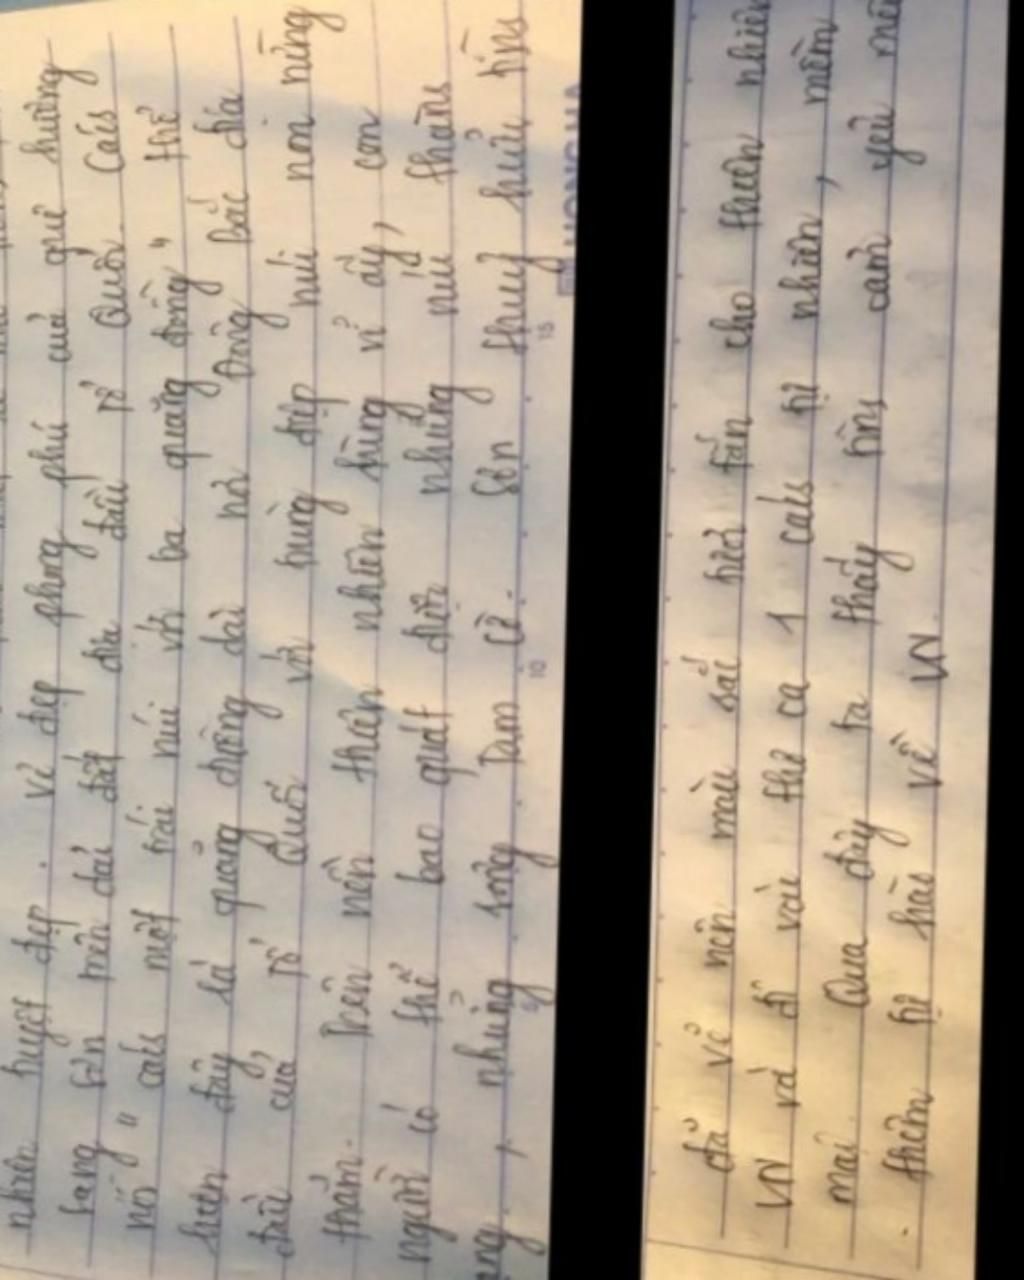 nhiên tuyệt đẹp. Vẻ đẹp phong phú của quê hương
sang tên dải đất đầu Tổ Quốc. Cách
nói "cách một trái núi với ba quãng đồng" thể
hiện đây là quãng đường dài nơi Đông Bắc địa
đầu của Tổ Quốc với hùng đẹp núi non nừng
thắm. Trên nền thiên nhiên hùng vĩ ấy, con
người có thể bao quát được những núi, thành
, những sông. Tam Cố. Sơn thuỷ hữu tình
đã vẽ nên màu sắc hoà tấn cho thiên nhiên
VN và đi vào thơ ca 1 cách tự nhiên, mềm
mại. Qua đây ta thấy tin, cảm yêu mến
thêm tự hào về VN.
HONG HA
5 10 15